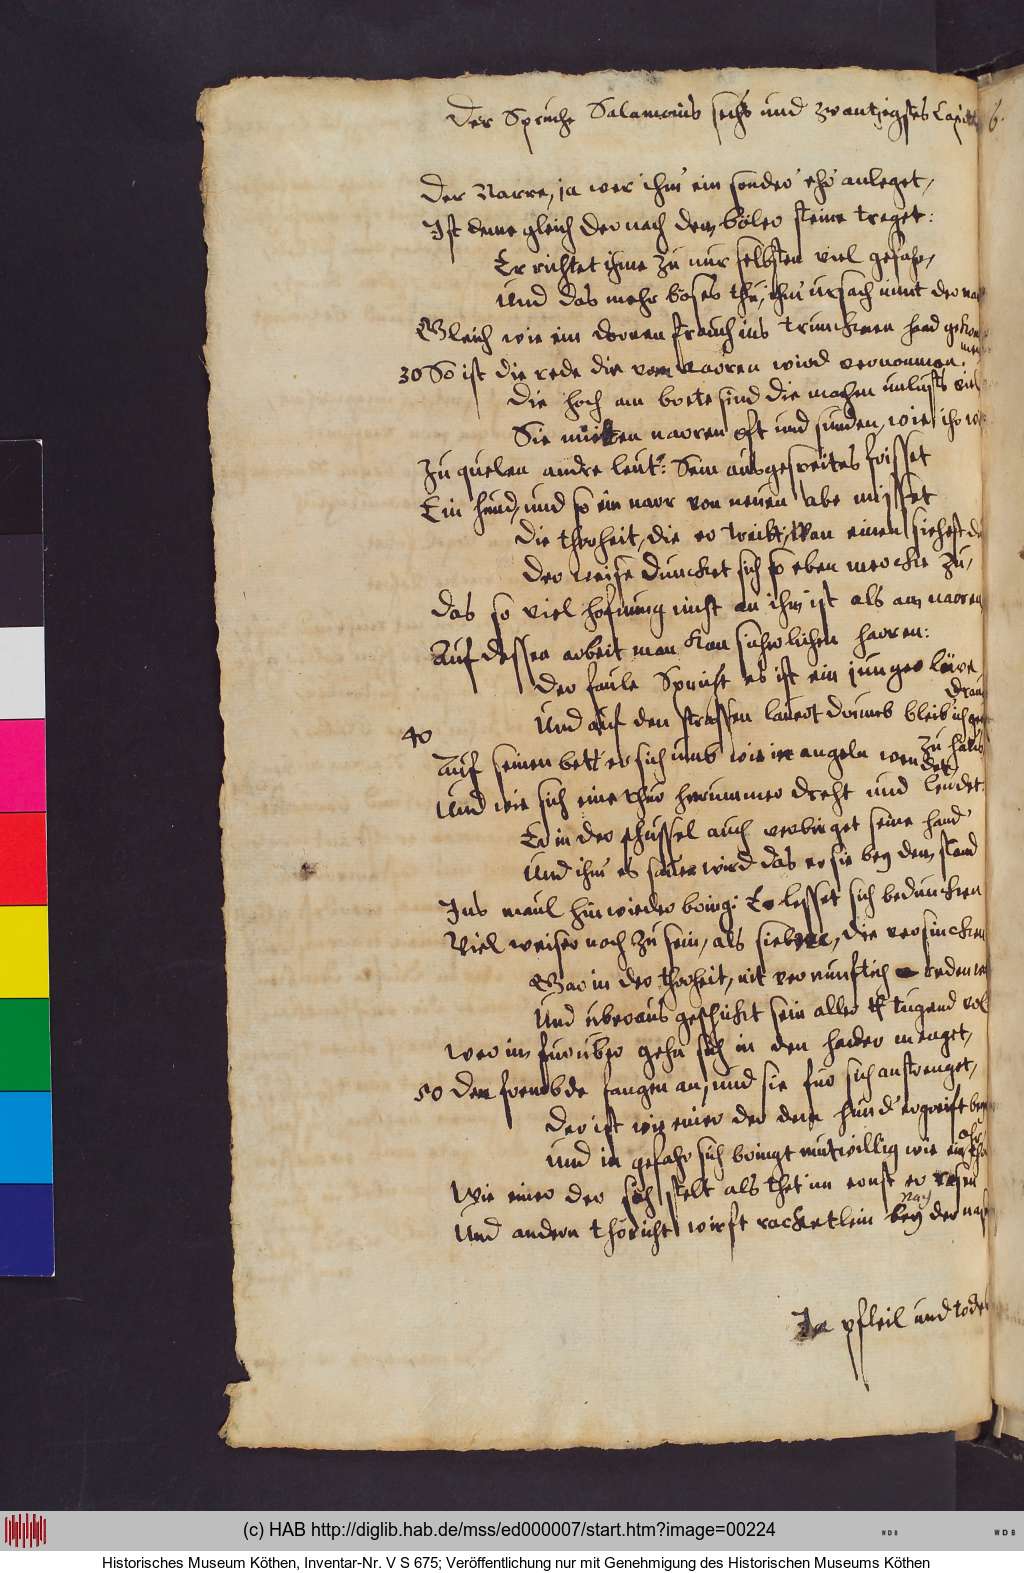 Der Spruche Salamonis sechs und zwantzigstes Capittel
Der Narre, ja wer ihm ein sonder ehr anleget,
Ist deme gleich der nach dem böler steine treget:
Er richtet ihme zu nur selbsten viel gefahr,
Und das mehr böses thu, ihm ursach nimt der nar
Gleich wie ein dornen strauch ins trunckenen hand gekom
men
30 So ist die rede die vom narren wird vernommen.
Die hoch am brete sind die machen unlusts viel
Sie mieten narren oft und sunden, wie ihr
Zu quelen andre leut: Sein ausgespeites frisset
Ein hund, und so ein narr von neuen abe misset
Die thorheit, die er treibt, Wan einen siehest du
Der weise duncket sich so eben mercke zu,
Das so viel hofnung nicht an ihm ist als am narren
Auf dessen arbeit man kan sicherlichen harren:
Der faule Spricht es ist ein junger löwe
draus
Und auf den strassen lauert drumb bleib ich
zu haus
40
Auf seinen bett er sich umb wie in angeln wendet
Und wie sich eine thur herummer dreht und lendet:
Er in der schussel auch verbirget seine hand
Und ihm es sauer wird das er sie bey dem stand
Ins maul hinwieder bring: Er lesset sich beduncken
Viel weiser noch zu sein, als siebene, die versincken
Gar in der thorheit, nit vernunftich reden
Und uberaus geschickt sein aller tugend vol
Wer im furuber gehn sich in den hader menget,
50 Den frembde fangen an, und sie fur sich anstrenget,
Der ist wie einer der dem hund ergreift bey
ohr
und in gefahr sich bringt mutwillig wie ein thor
Wie einer der sich stelt als thet im ernst er rasen
nay
Und andern thöricht wirft racketlein bey der nasen
Ja pfleil und todes
(c) HAB http://diglib.hab.de/mss/ed000007/start.htm?image=00224
WDB
WDB
Historisches Museum Köthen, Inventar-Nr. V S 675; Veröffentlichung nur mit Genehmigung des Historischen Museums Köthen